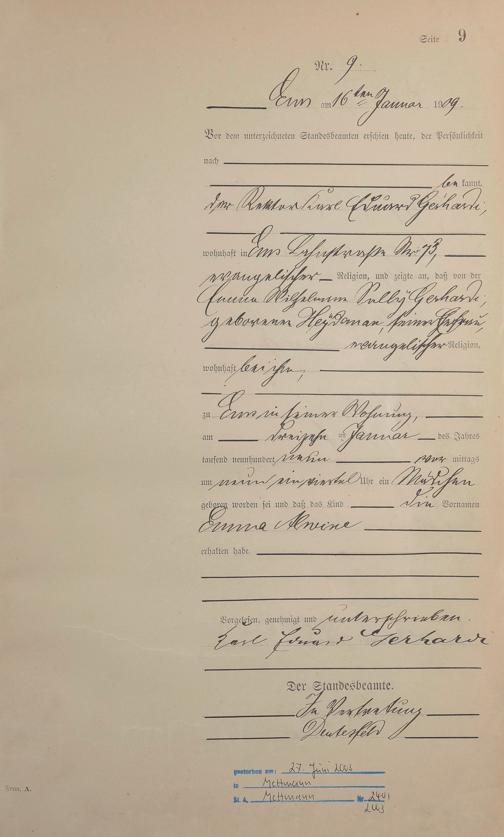 Seite 9
Nr. 9.
Ems am 16ten Januar 1909.
Vor dem unterzeichneten Standesbeamten erschien heute, der Persönlichkeit
nach
be kannt,
der Rektor Karl Eduard Gerhardi,
wohnhaft in Ems Lahnstraße Nr 73,
evangelischer Religion, und zeigte an, daß von der
Emma Wilhelmine Gerhardi,
geborenen Heydmann, seiner Ehefrau,
evangelischer Religion,
wohnhaft bei ihm,
zu Ems in seiner Wohnung,
am dreizehn ten Januar des Jahres
tausend neunhundert neun vor mittags
um neun einviertel Uhr ein Mädchen
geboren worden sei und daß das Kind die Vornamen
Emma Alwine
erhalten habe.
Vorgelesen, genehmigt und unterschrieben.
Karl Eduard Gerhardi
Der Standesbeamte.
In Vertretung
gestorben am: 27. Juni 2003
in Mettmann
St. A. Mettmann Nr.
2003
Form. A.